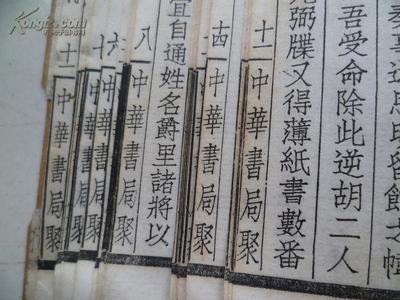 留館
吾受命除此逆胡二人
弼牒又得薄紙書數番
十二 中華書局聚
四 中華書局聚
宜自通姓名爵里諸將以
八 中華書局聚
六 中華書局聚
十 中華書局聚
十一 中華書局聚